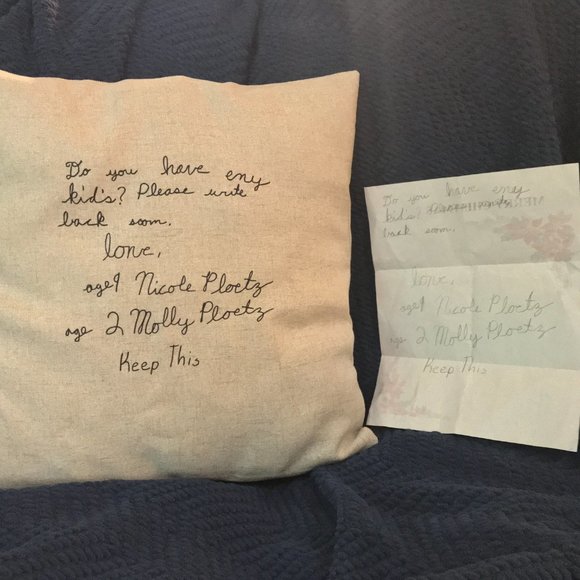 Do you have eny
kid's? Please write
back soon.
love,
age 9 Nicole Ploetz
age 2 Molly Ploetz
Keep This
Do you have eny
kid's?
back soon.
love,
age 9 Nicole Ploetz
age 2 Molly Ploetz
Keep This